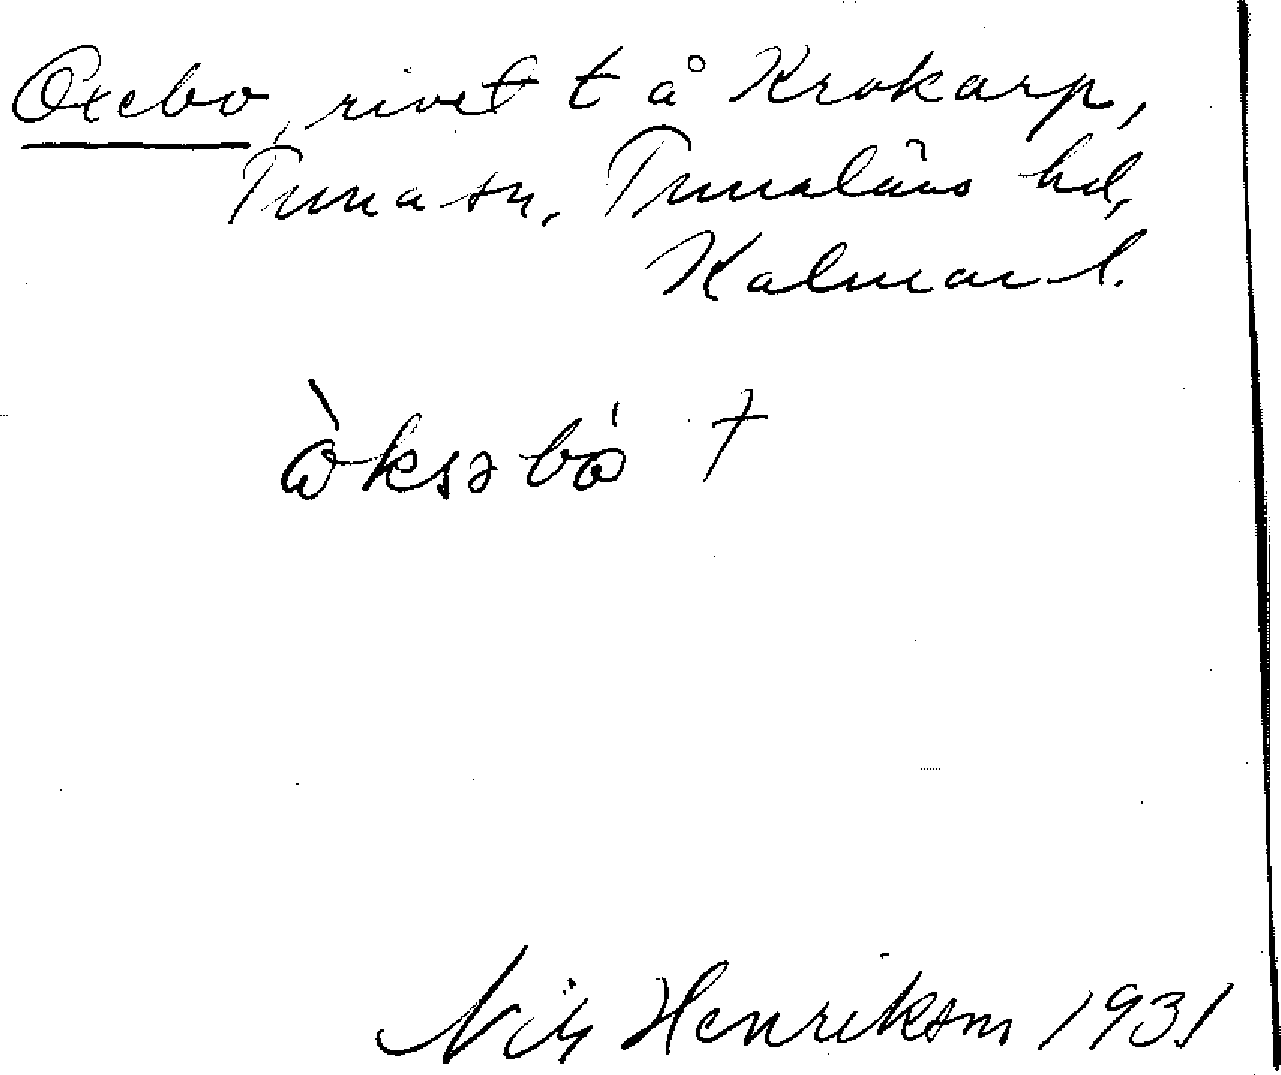 Oxebo, rivet t å Krokarp,
Tuna sn, Tunaläns hd,
Kalmar l.
òksəbó †
Nils Henrikson 1931